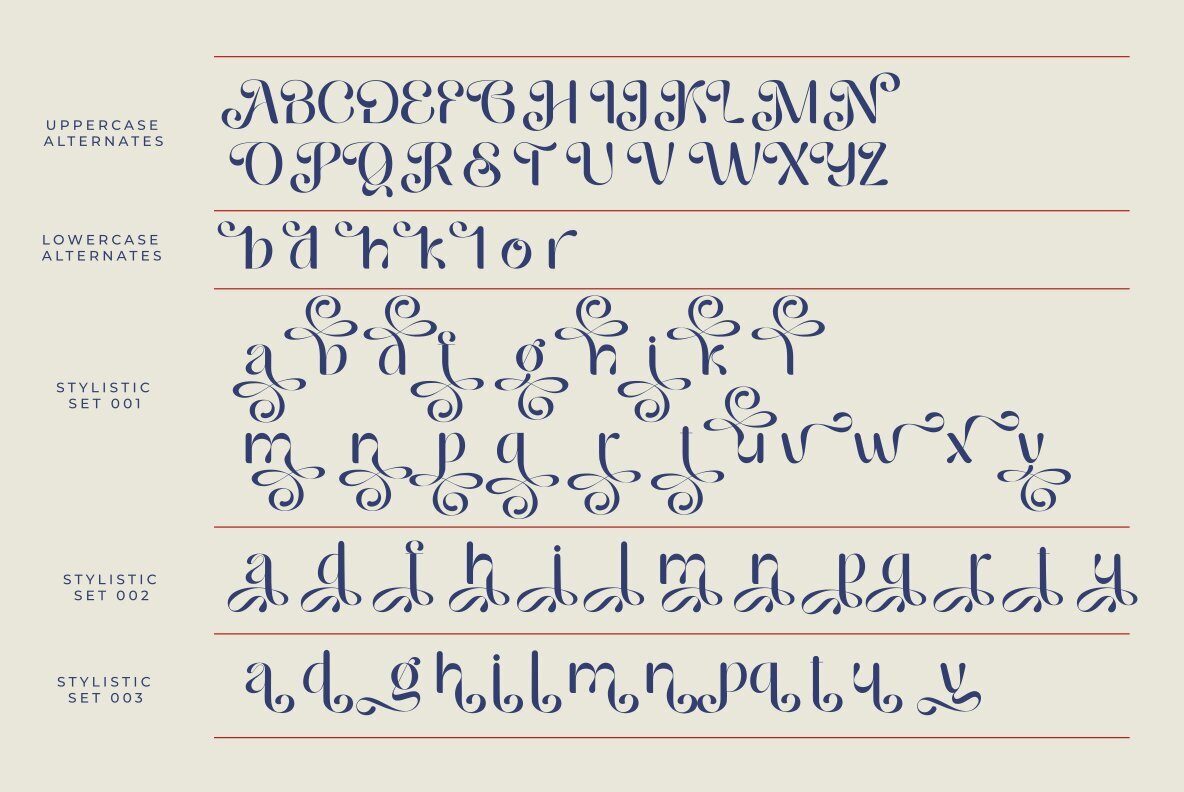 UPPERCASE
ALTERNATES
ABCDEFGHIJKLMN
OPQRSTUVWXYZ
LOWERCASE
ALTERNATES
b d h k l o r
STYLISTIC
SET 001
a b d f g h i k l
m n p q r t u v w x y
STYLISTIC
SET 002
a d f h i l m n p q r t u
STYLISTIC
SET 003
a d g h i l m n p q t u y